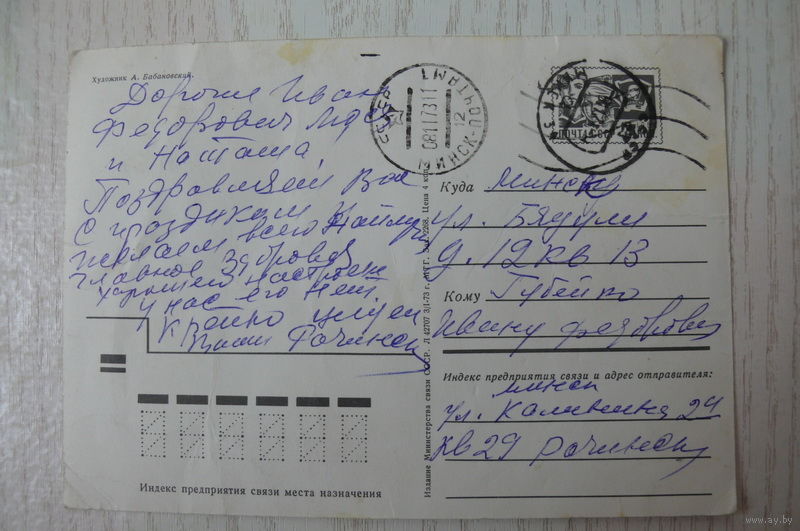 Художник А. Бабановский.
Дорогие Иван
Федорович
и Наташа,
Поздравляем Вас
с праздником и
желаем всего
главное здоровья
у нас его нет.
Крепко целуем
Ваши
СССР
МИНСК-ПОЧТАМТ
081173 11
12
ПОЧТА СССР
Куда Минск
ул. Бядули
д. 12 кв 13
Кому Губейко
Ивану Федорович
Индекс предприятия связи и адрес отправителя:
Минск
ул. Калинина 24
кв 29
Издание Министерства связи СССР. Л 42707 3/1-73 г. Цена 4 коп.
Индекс предприятия связи места назначения
www.ay.by